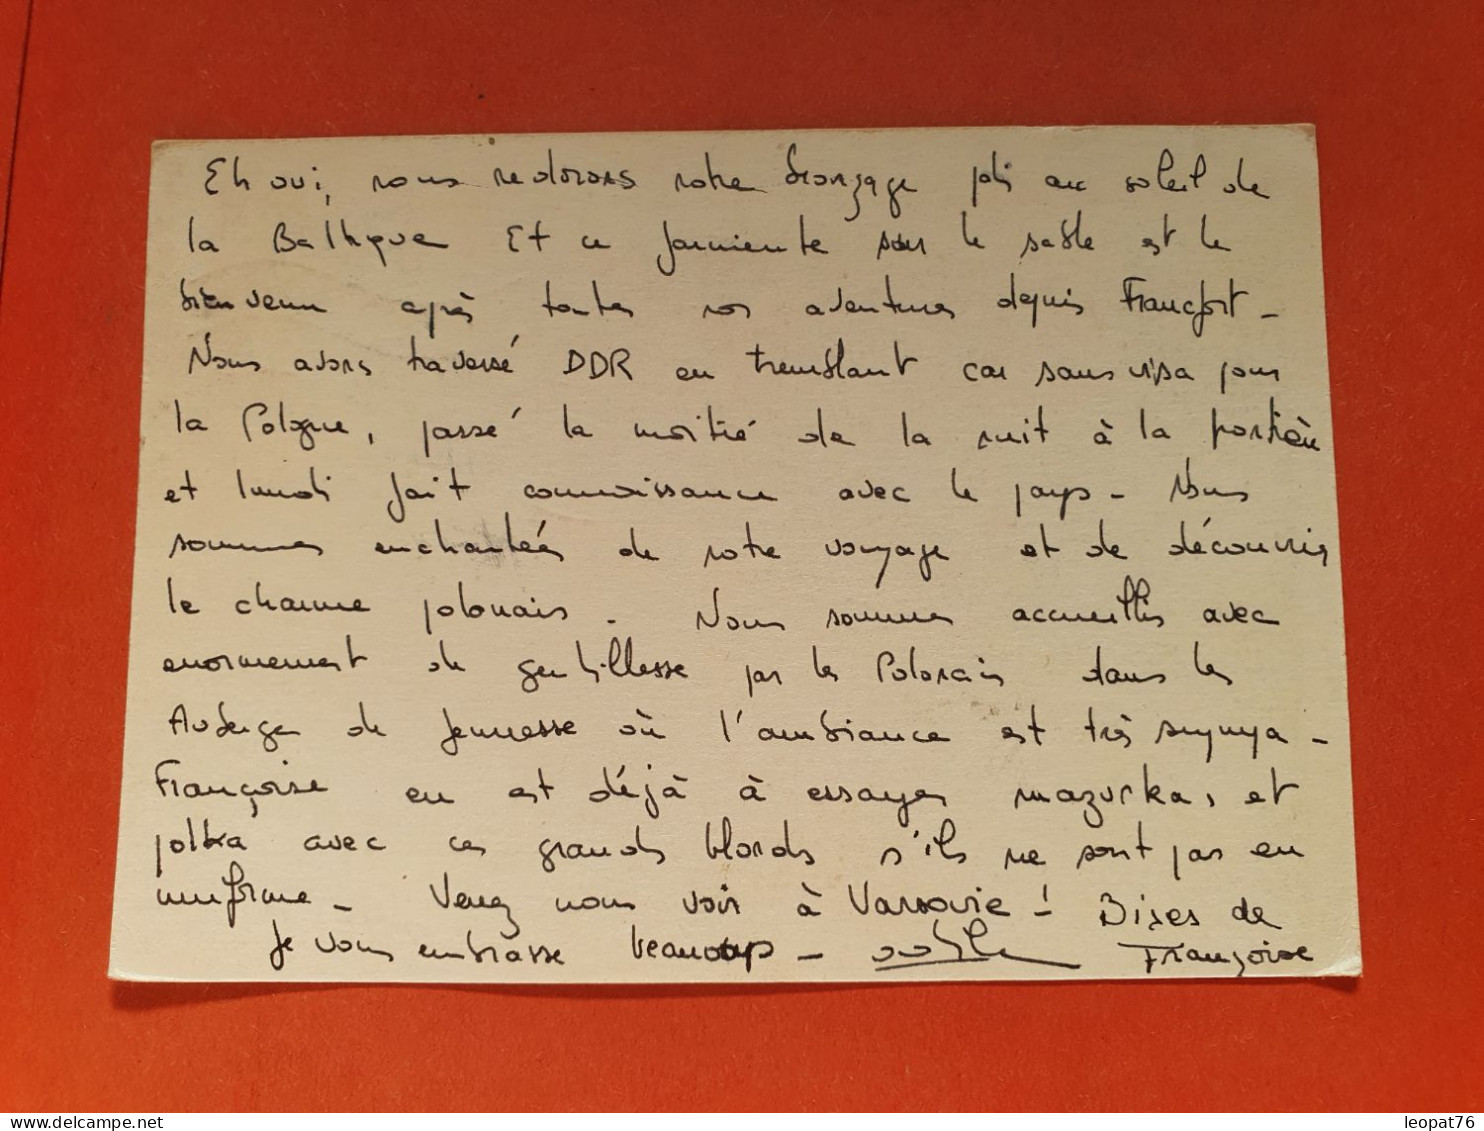 Eh oui, nous redorons notre bronzage pâli au soleil de
la Baltique Et ce farniente sur le sable est le
bienvenu après toutes nos aventures depuis Francfort -
Nous avons traversé DDR en tremblant car sans visa pour
la Pologne, passé la moitié de la nuit à la portière
et lundi fait connaissance avec le pays - Nous
sommes enchantées de notre voyage et de découvrir
le charme polonais. Nous sommes accueillis avec
enormement de gentillesse par les Polonais dans les
Auberges de Jeunesse où l'ambiance est très sympa -
Françoise en est déjà à essayer mazurka, et
polka avec ces grands blonds s'ils ne sont pas en
uniforme - Venez nous voir à Varsovie ! Bises de
Je vous embrasse beaucoup - Françoise
leopat76